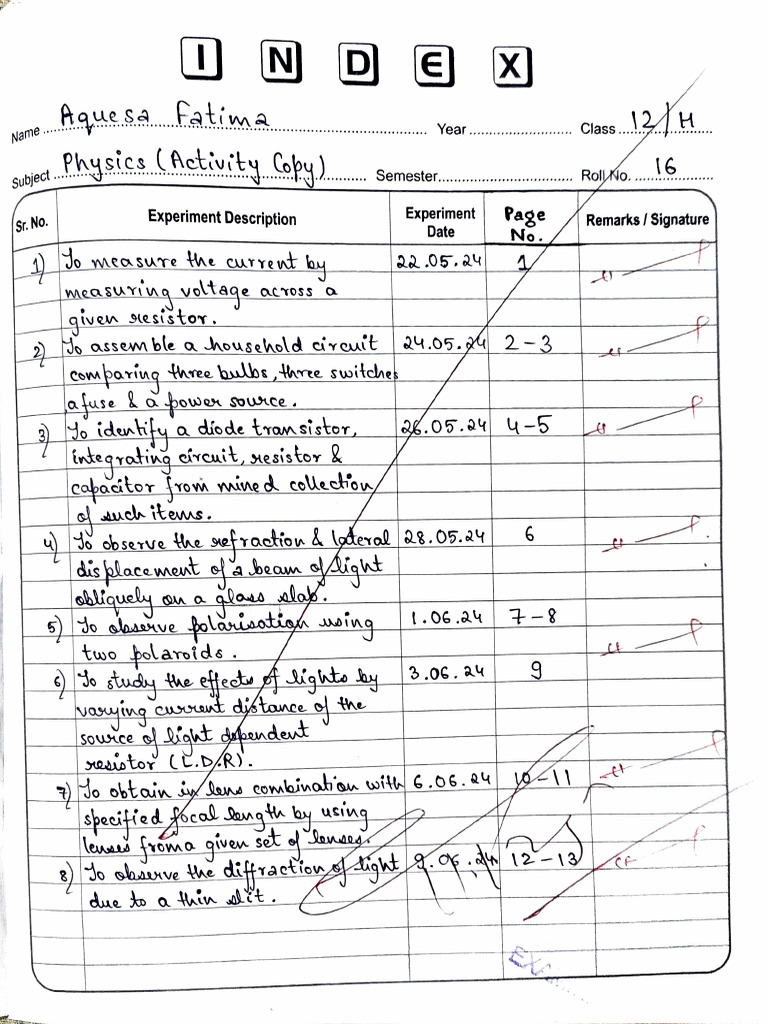 INDEX
Name Aquesa Fatima Year Class 12/H
Subject Physics (Activity Copy) Semester Roll No. 16
Sr. No. Experiment Description Experiment Date Page No. Remarks / Signature
1) To measure the current by 22.05.24 1
measuring voltage across a
given resistor.
2) To assemble a household circuit 24.05.24 2-3
comparing three bulbs, three switches
a fuse & a power source.
3) To identify a diode transistor, 26.05.24 4-5
integrating circuit, resistor &
capacitor from mined collection
of such items.
4) To observe the refraction & lateral 28.05.24 6
displacement of a beam of light
obliquely on a glass slab.
5) To observe polarisation using 1.06.24 7-8
two polaroids.
6) To study the effects of lights by 3.06.24 9
varying current distance of the
source of light dependent
resistor (L.D.R).
7) To obtain in lens combination with 6.06.24 10-11
specified focal length by using
lenses from a given set of lenses.
8) To observe the diffraction of light 9.06.24 12-13
due to a thin slit.